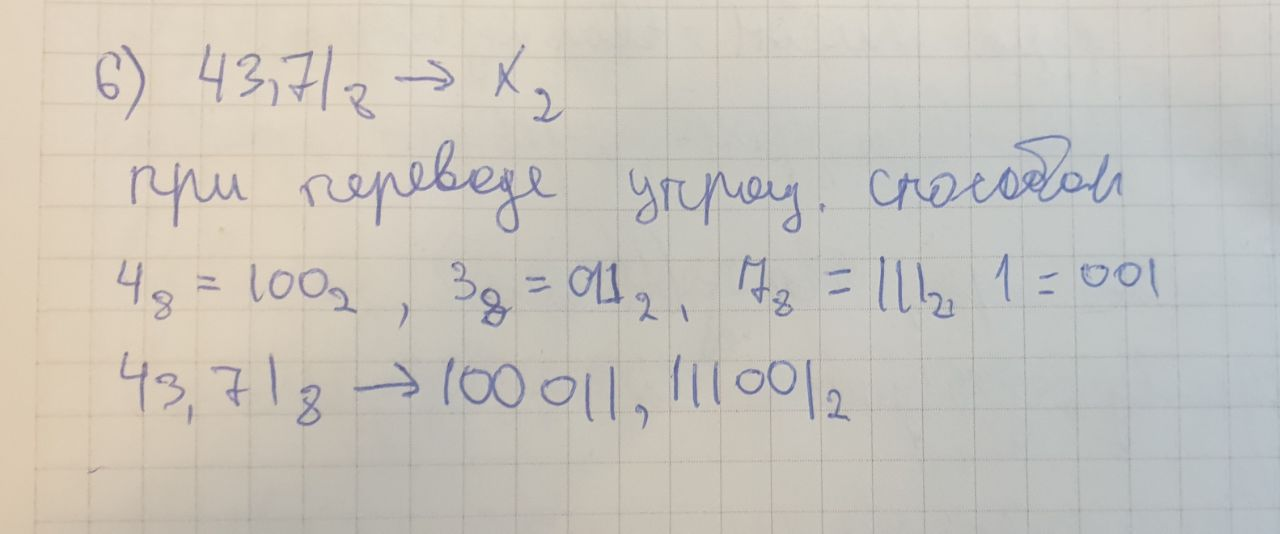 б) 43,71₈ → X₂
при переводе упрощ. способом
4₈ = 100₂, 3₈ = 011₂, 7₈ = 111₂, 1 = 001
43,71₈ → 100011,111001₂